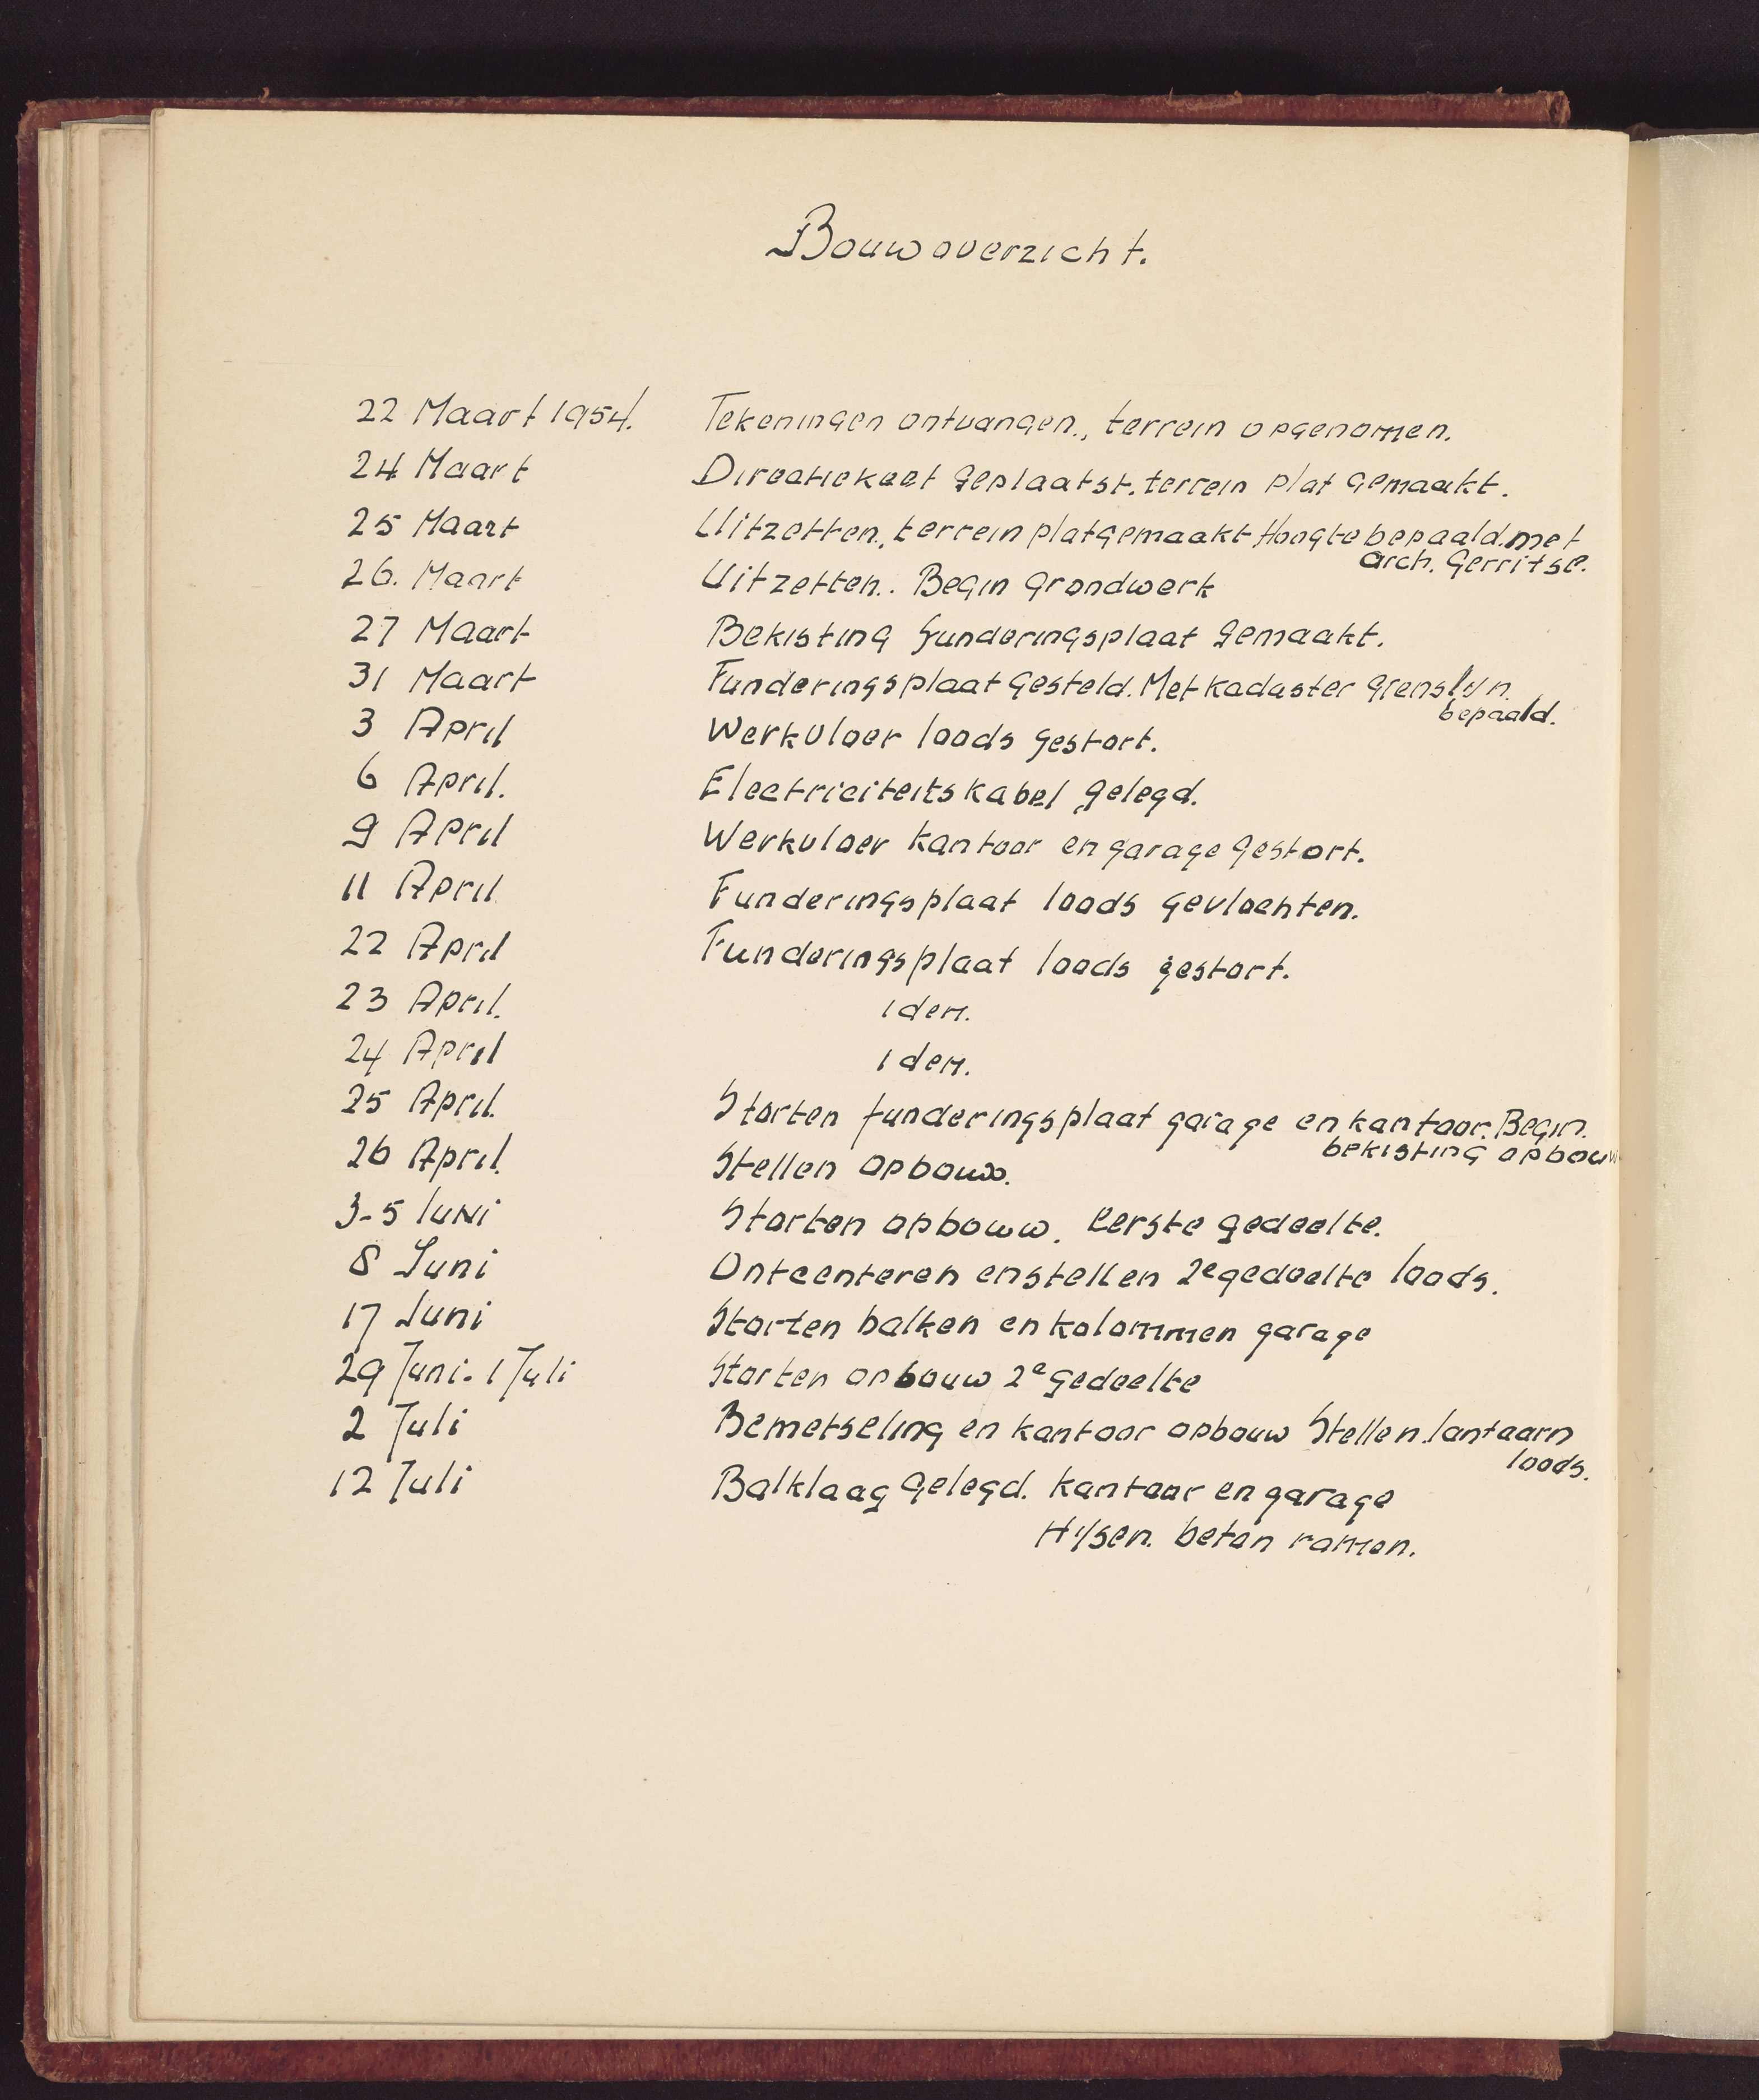 Bouwoverzicht.
22 Maart 1954. Tekeningen ontvangen., terrein opgenomen.
24 Maart Directiekeet geplaatst. terrein plat gemaakt.
25 Maart Uitzetten., terrein platgemaakt Hoogte bepaald. met
arch. Gerritse.
26. Maart Uitzetten.. Begin grondwerk
27 Maart Bekisting funderingsplaat gemaakt.
31 Maart Funderingsplaat gesteld. Met kadaster grenslijn.
bepaald.
3 April Werkvloer loods gestort.
6 April. Electriciteitskabel gelegd.
9 April Werkvloer kantoor en garage gestort.
11 April Funderingsplaat loods gevlochten.
22 April Funderingsplaat loods gestort.
23 April. idem.
24 April idem.
25 April. Storten funderingsplaat garage en kantoor. Begin.
bekisting opbouw
26 April. Stellen opbouw.
3-5 Juni Storten opbouw. Eerste gedeelte.
8 Juni Ontcenteren en stellen 2e gedeelte loods.
17 Juni Storten balken en kolommen garage
29 Juni - 1 Juli Storten opbouw 2e gedeelte
2 Juli Bemetseling en kantoor opbouw Stellen lantaarn
loods.
12 Juli Balklaag gelegd. kantoor en garage
Hijsen. beton ramen.